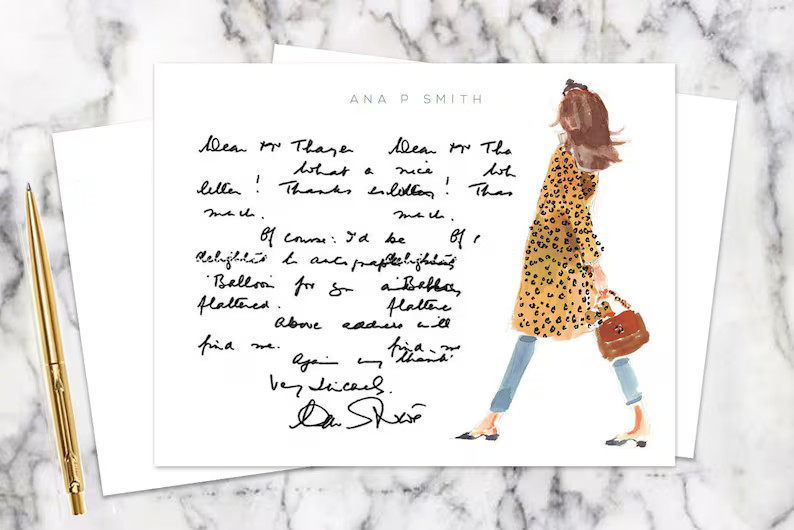 ANA P SMITH
Dear Mr Thayer Dear Mr Tha
What a nice Wh
letter! Thanks so letter! Than
much. much.
Of course: I'd be Of
delighted to autograph delighted
"Balloon for you "Balloon
flattered. flattere
Above address will
find me. find me
Again my thanks
Very sincerely.